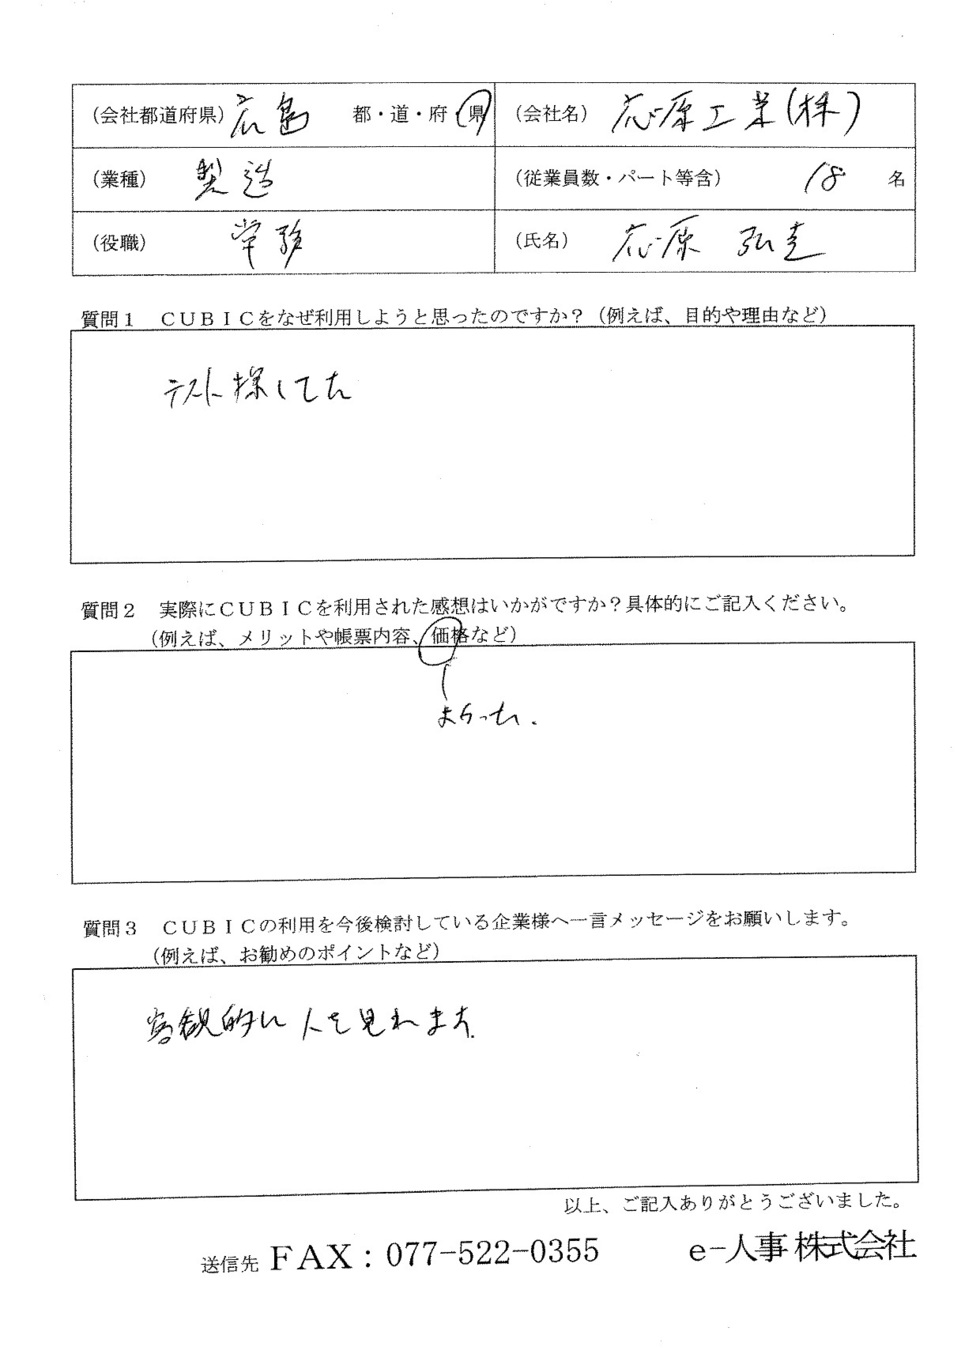 (会社都道府県) 広島 都・道・府・県
(会社名) 応原工業(株)
(業種) 製造
(従業員数・パート等含) 18 名
(役職) 常務
(氏名) 応原 弘
質問1 CUBICをなぜ利用しようと思ったのですか?(例えば、目的や理由など)
テスト探してた
質問2 実際にCUBICを利用された感想はいかがですか?具体的にご記入ください。
(例えば、メリットや帳票内容、価格など)
質問3 CUBICの利用を今後検討している企業様へ一言メッセージをお願いします。
(例えば、お勧めのポイントなど)
客観的に人を見れます
以上、ご記入ありがとうございました。
送信先 FAX:077-522-0355 e-人事株式会社